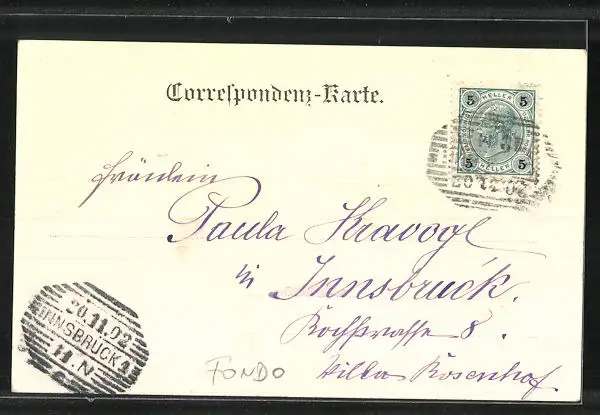 Correspondenz-Karte.
5 HELLER 5
5 HELLER 5
20 12 02
Fräulein
Paula Kravogl
in Innsbruck.
Kochstrasse 8.
Villa Rosenhof
FONDO
20.11.02
INNSBRUCK 1
11.N